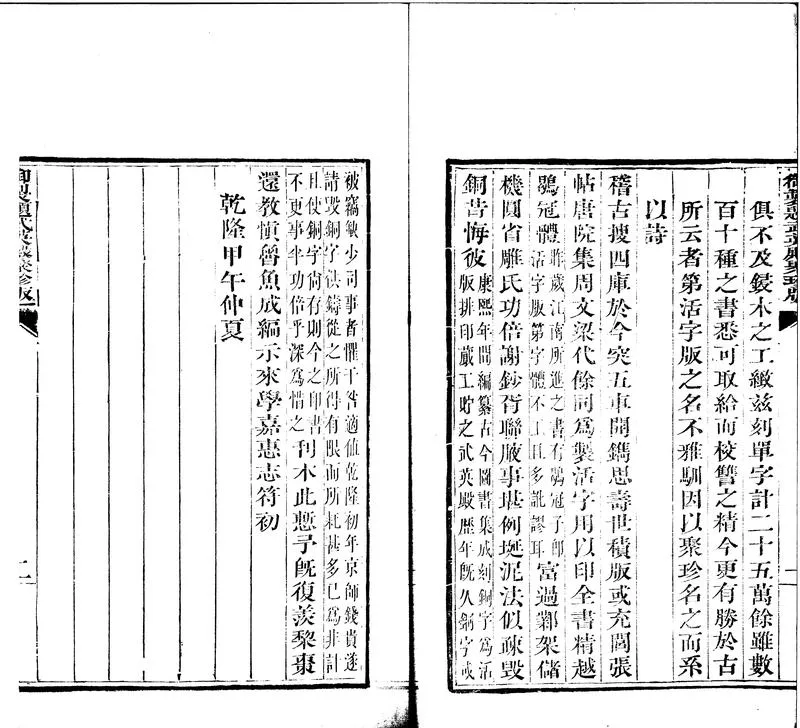 御製題武英殿聚珍版
一
俱不及鋟木之工緻茲刻單字計二十五萬餘雖數
百十種之書悉可取給而校讐之精今更有勝於古
所云者第活字版之名不雅馴因以聚珍名之而系
以詩
稽古搜四庫於今突五車開鐫思壽世積版或充閭張
帖唐院集周文梁代餘同爲製活字用以印全書精越
鶡冠體昨歲江南所進之書有鶡冠子即活字版第字體不工且多訛謬耳富過鄴架儲
機圓省雕氏功倍謝鈔胥聯腋事堪例埏泥法似疎毀
銅昔悔彼康熙年間編纂古今圖書集成刻銅字爲活版排印蕆工貯之武英殿歷年旣久銅字或
被竊缺少司事者懼干咎適值乾隆初年京師錢貴遂請毀銅字供鑄從之所得有限而所耗甚多已爲非計
且使銅字尚存則今之印書不更事半功倍乎深爲惜之刊木此慙予旣復羨黎棗
還教愼魯魚成編示來學嘉惠志符初
乾隆甲午仲夏
御製題武英殿聚珍版
二